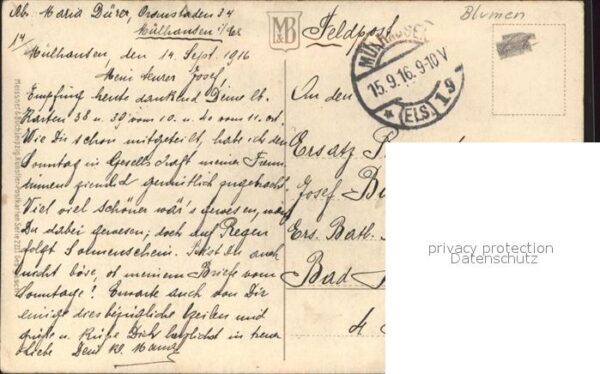 Ab. Maria Dürer, 34
Mülhausen i/Els
14/
Mülhausen, den 14. Sept. 1916
Mein teurer Josef!
Empfing heute dankend Deine lb.
Karten 38 u. 39 vom 10. u. 11. ct.
Wie Dir schon mitgeteilt, hab ich den
Sonntag in Gesellschaft meiner Freun-
dinnen ziemlich gemütlich zugebracht.
Viel viel schöner wär's gewesen, wenn
Du dabei gewesen; doch auf Regen
folgt Sonnenschein. bist Du auch
nicht böse, ob meinem Briefe vom
Sonntage! Erwarte auch von Dir
einige diesbezügliche Zeilen und
grüße u. küße Dich herzlichst in treuer
Liebe Dein kl.
MB
Feldpost
Blumen
MÜLHAUSEN
15.9.16.9-10V
* (ELS) 19
An den
Ersatz
Josef
Ers. Batl.
Bad
privacy protection
Datenschutz